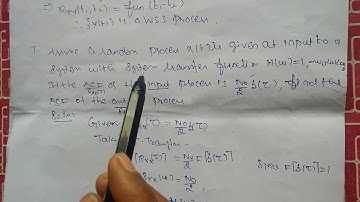 ⇒ Rxx(t1,t2) = fun.(t1-t2)
∴ X(t) is a WSS process.
7. Assume a random process X(t) is given as input to a
system with system transfer function H(ω)=1, -ω0<ω<ω0
If the ACF of the input process is N0/2 δ(τ), find out the
ACF of the process
Solu:
Given (τ) = N0/2 δ(τ)
Fourier Transform
[Rxx(τ)] = N0/2 F[δ(τ)] Since F[δ(τ)]=1
Sxx(ω) = N0/2